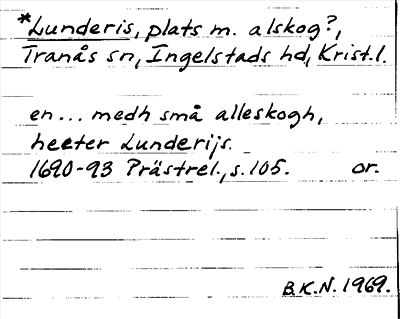 *Lunderis, plats m. alskog?,
Tranås sn, Ingelstads hd, Krist.l.
en... medh små alleskogh,
heeter Lunderijs.
1690-93 Prästrel., s. 105. or.
B.K.N. 1969.